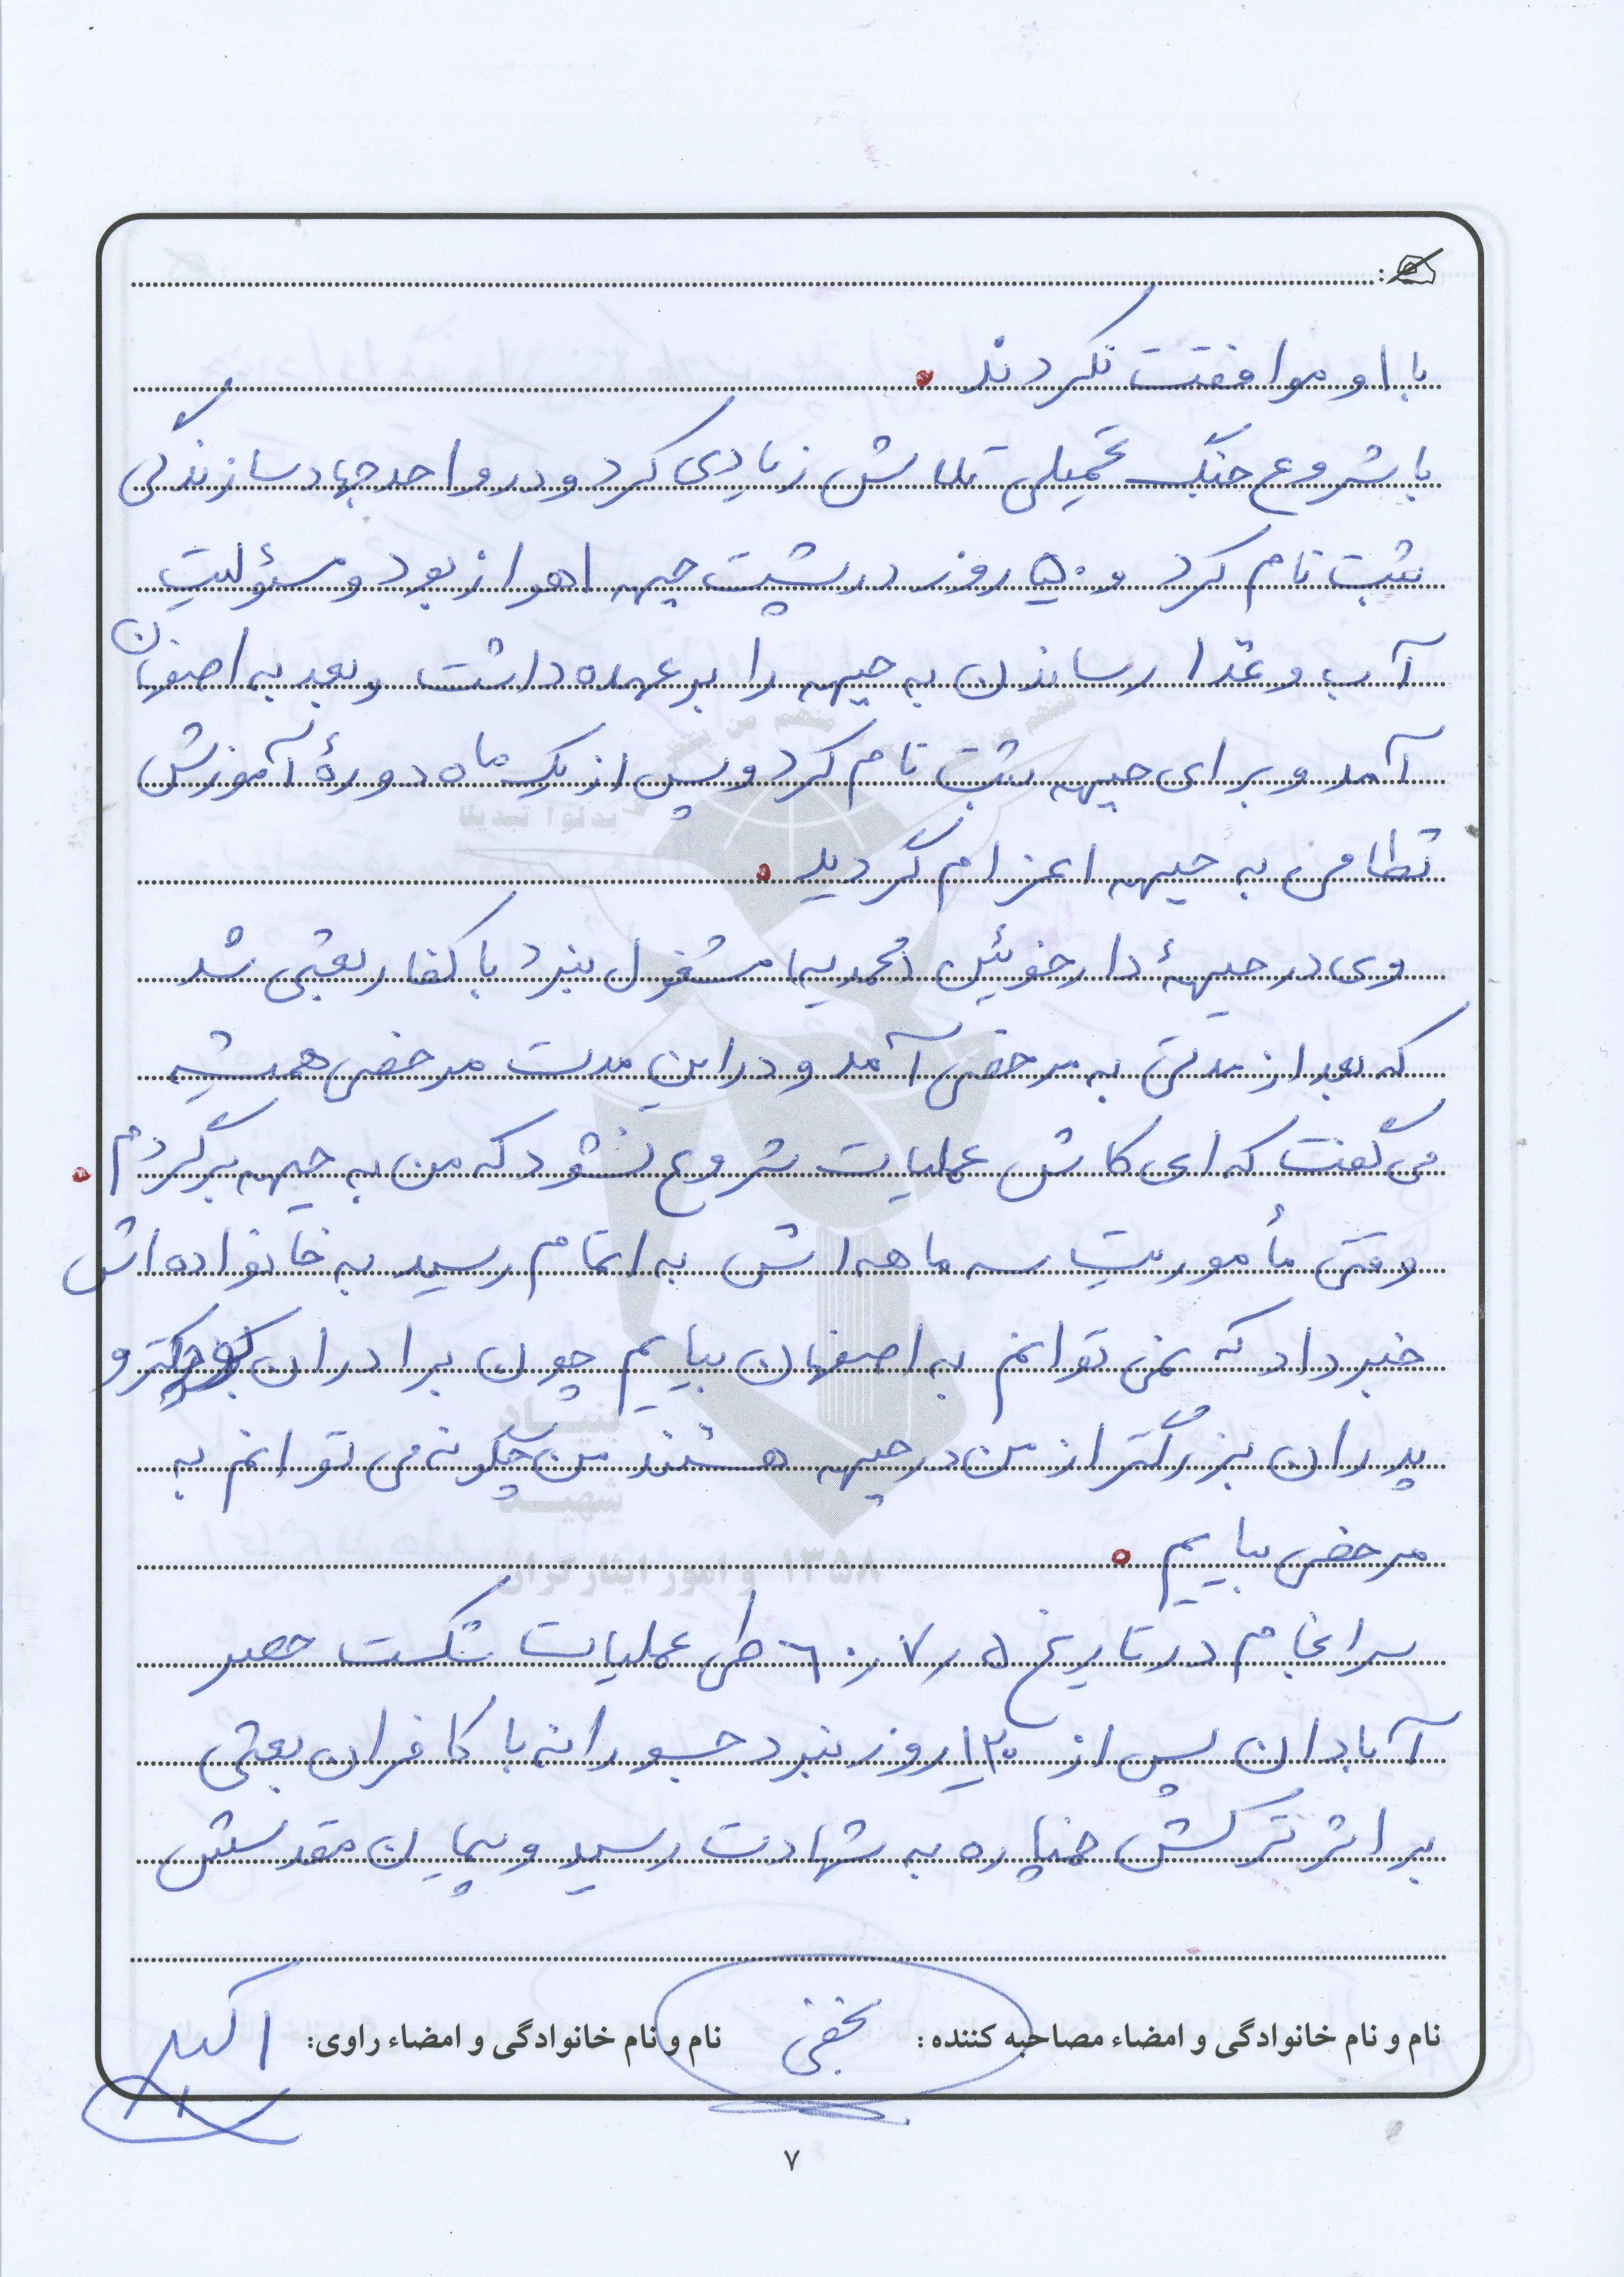 با او موافقت نکردند.
با شروع جنگ تحمیلی تلاش زیادی کرد و در واحد جهاد سازندگی
ثبت نام کرد و ۵۰ روز در پشت جبهه اهواز بود و مسئولیت
آب و غذا رساندن به جبهه را بر عهده داشت و بعد به اصفهان
آمد و برای جبهه ثبت نام کرد و پس از یک ماه دورهٔ آموزش
نظامی به جبهه اعزام گردید.
وی در جبههٔ دارخوئین محمدیه مشغول نبرد با کفار بعثی شد
که بعد از مدتی به مرخصی آمد و در این مدت مرخصی همیشه
می گفت که ای کاش عملیات شروع نشود که من به جبهه برگردم.
وقتی مأموریت سه ماهه اش به اتمام رسید به خانواده اش
خبر داد که نمی توانم به اصفهان بیایم چون برادران کوچکتر و
پدران بزرگتر از من در جبهه هستند من چگونه می توانم به
مرخصی بیاییم.
سرانجام در تاریخ ۵ ر ۷ ر ۶۰ طی عملیات شکست حصر
آبادان پس از ۱۳۰ روز نبرد جسورانه با کافران بعثی
بر اثر ترکش خمپاره به شهادت رسید و پیمان مقدسش
نام و نام خانوادگی و امضاء مصاحبه کننده: نجفی نام و نام خانوادگی و امضاء راوی: اکبر
۷
بنیاد
شهید
و امور ایثارگران ۱۳۵۸